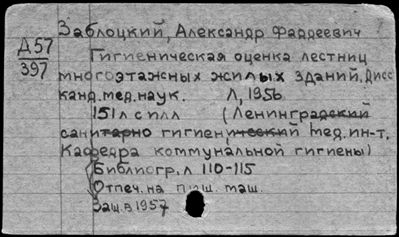 Заблоцкий, Александр Фаддеевич
Д57
397
Гигиеническая оценка лестниц
многоэтажных жилых зданий. Дисс
канд. мед. наук. Л, 1956
151 л с илл (Ленинградский
санитарно гигиенический мед. ин-т.
Кафедра коммунальной гигиены)
Библиогр. л 110-115
Отпеч. на пиш. маш.
Защ. в 1957